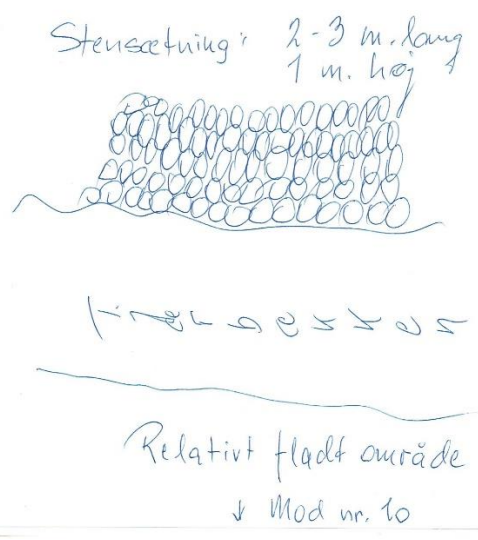 Stensætning: 2-3 m. lang
1 m. høj
Relativt fladt område
↓ Mod nr. 10